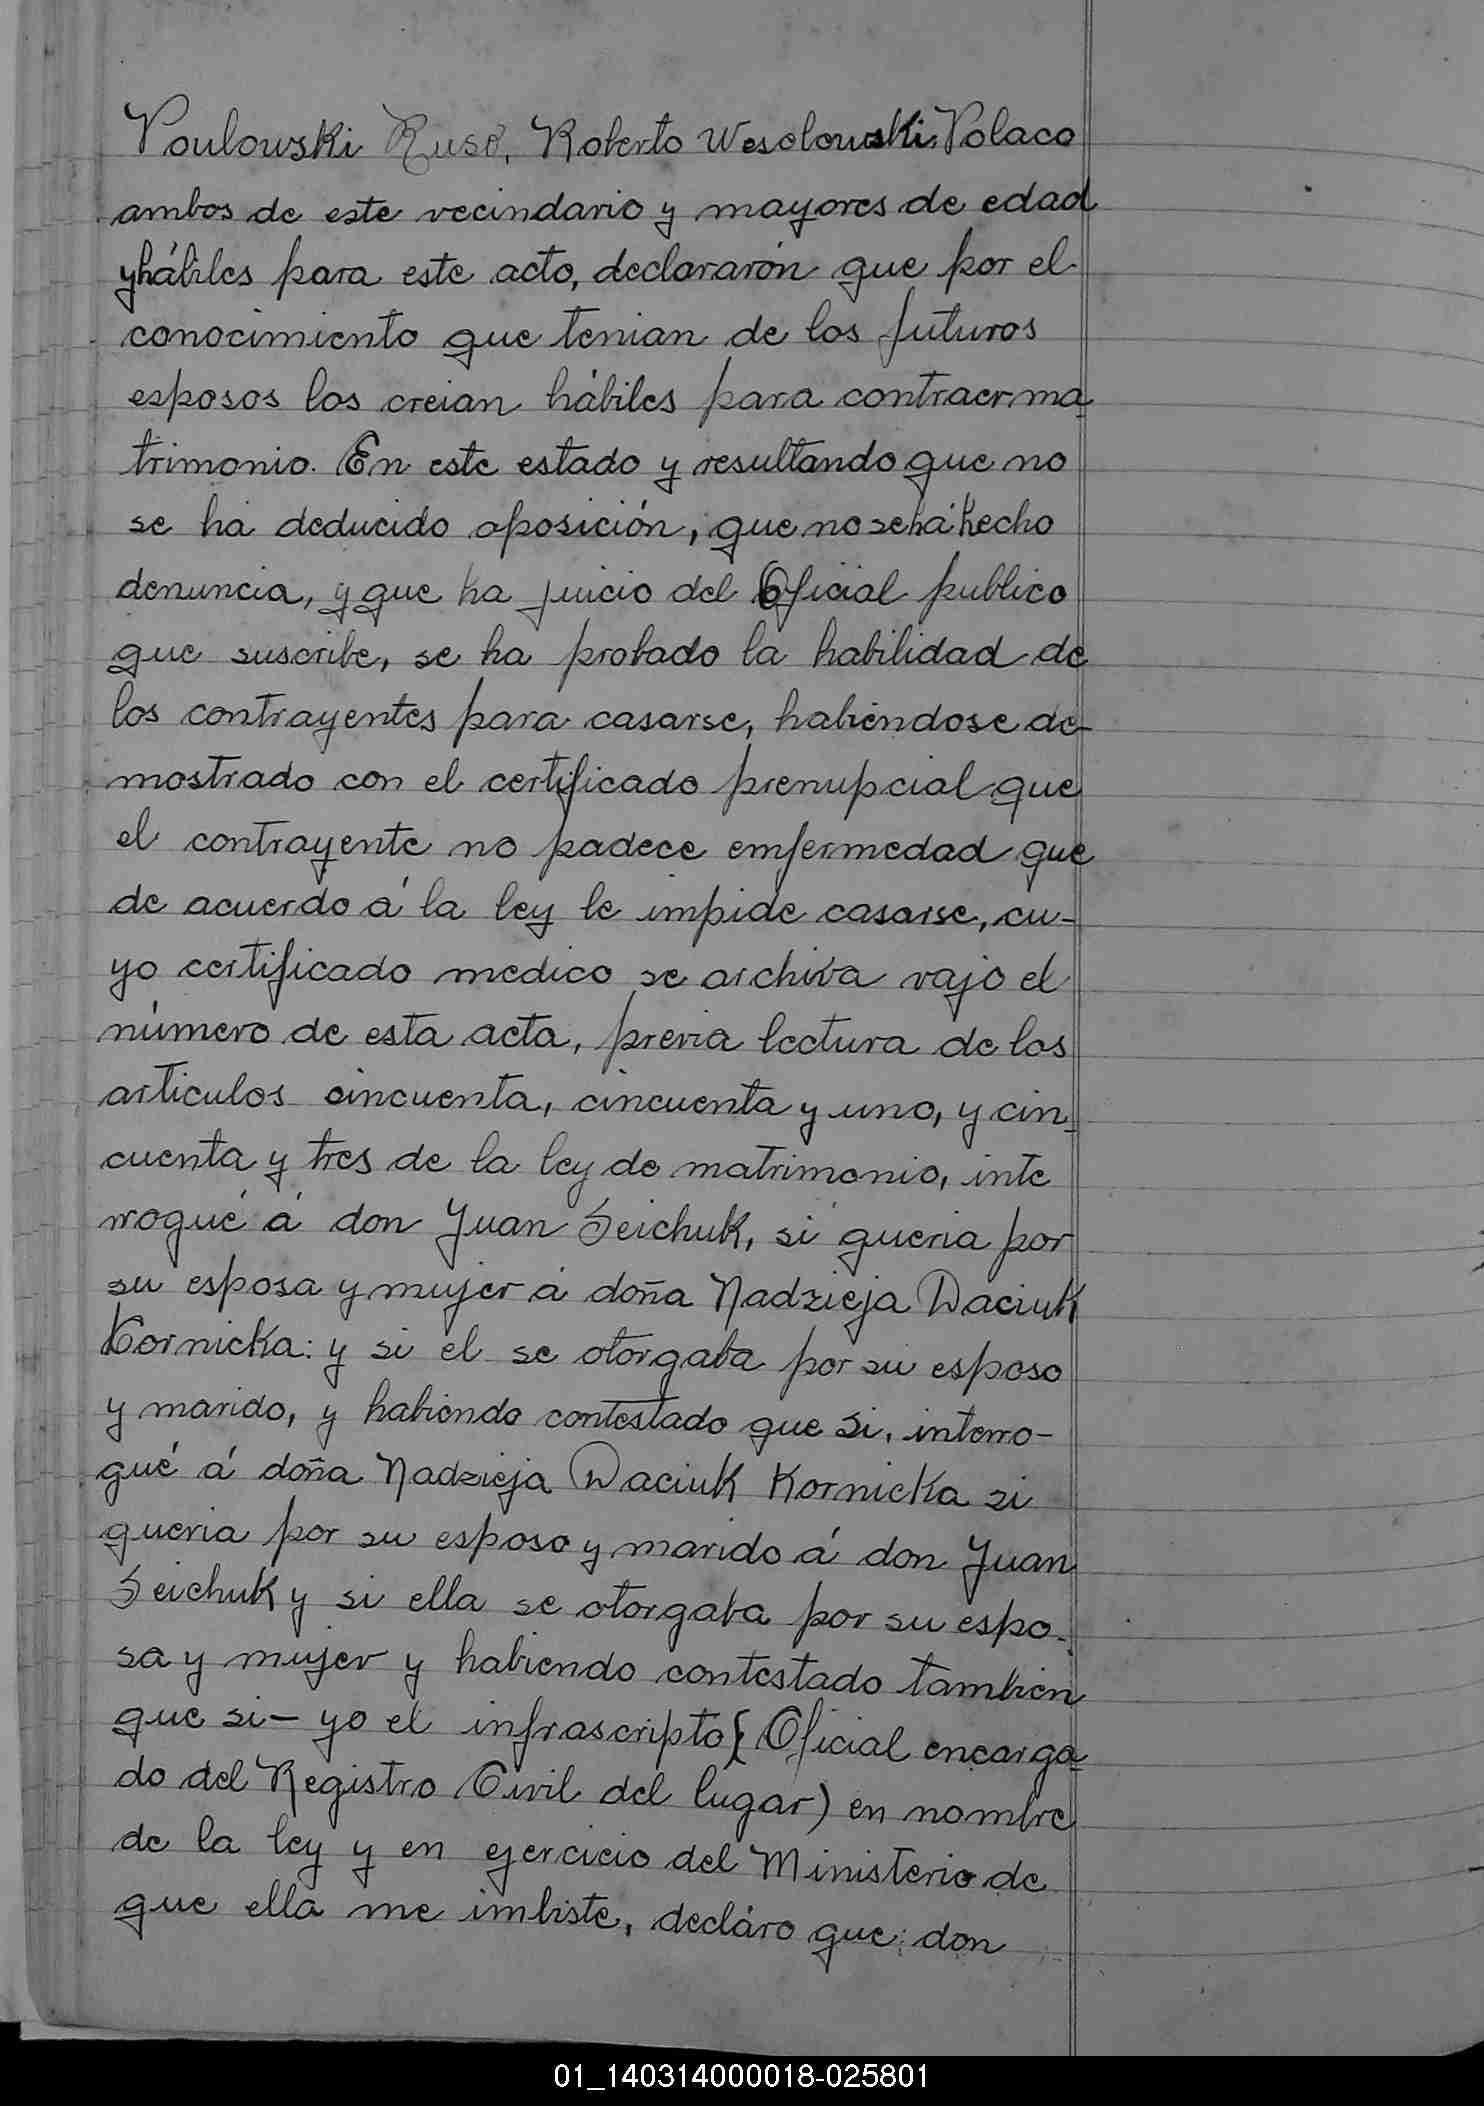 Poulowski Ruso, Roberto Wesolowski Polaco
ambos de este vecindario y mayores de edad
y hábiles para este acto, declararón que por el
conocimiento que tenian de los futuros
esposos los creian hábiles para contraer ma
trimonio. En este estado y resultando que no
se há deducido oposición, que no se há hecho
denuncia, y que ha juicio del Oficial publico
que suscribe, se ha probado la habilidad de
los contrayentes para casarse, habiéndose de-
mostrado con el certificado prenupcial que
el contrayente no padece emfermedad que
de acuerdo á la ley le impide casarse, cu-
yo certificado medico se archiva vajo el
número de esta acta, previa lectura de los
articulos cincuenta, cincuenta y uno, y cin-
cuenta y tres de la ley de matrimonio, inte
rrogué á don Juan Seichuk, si queria por
su esposa y mujer á doña Nadzieja Daciuk
Kornicka: y si el se otorgaba por su esposo
y marido, y habiendo contestado que si, interro-
gué á doña Nadzieja Daciuk Kornicka si
queria por su esposo y marido á don Juan
Seichuk y si ella se otorgaba por su espo-
sa y mujer y habiendo contestado tambien
que si- yo el infrascripto (Oficial encarga-
do del Registro Civil del lugar) en nombre
de la ley y en ejercicio del Ministerio de
que ella me imbiste, decláro que: don
01_140314000018-025801